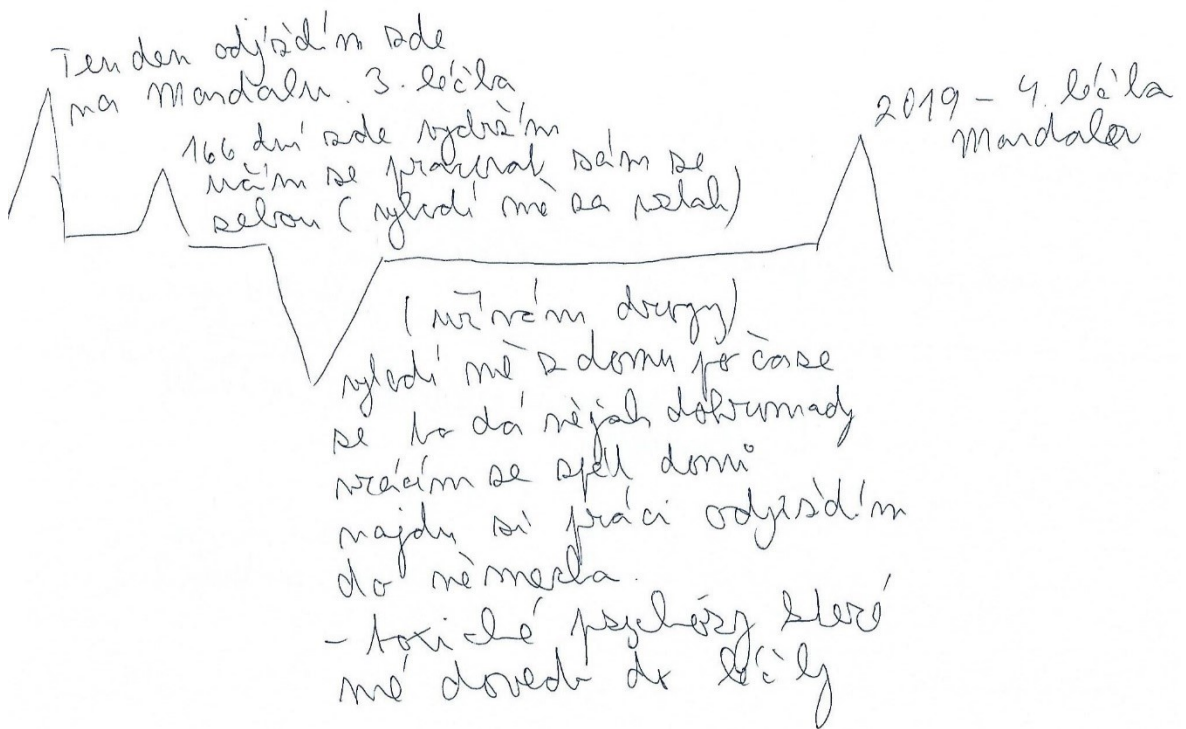 Ten den odjíždím zde
na Mandalu. 3. léčba
166 dní zde vydržím
učím se pracovat sám se
sebou (vyhodí mě za vztah)
2019 - 4. léčba
Mandala
(užívám drogy)
vyhodí mě z domu po čase
se to dá nějak dohromady
vrácím se zpět domů
najdu si práci odjíždím
do německa.
- toxické psychózy které
mé dovedli do léčby